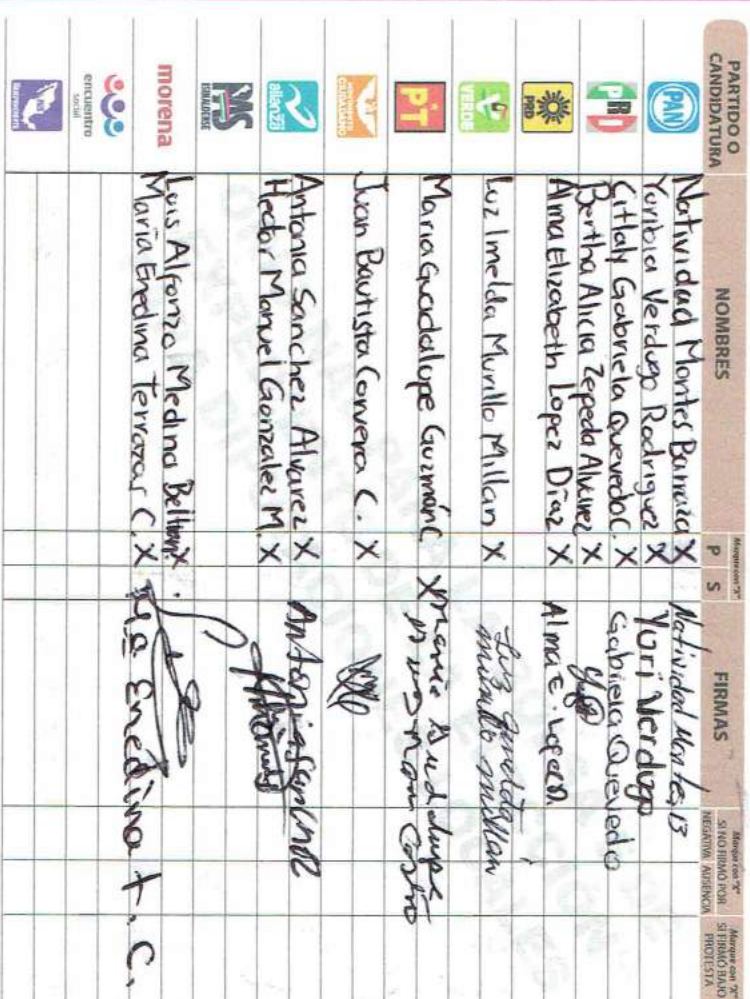 PARTIDO O
CANDIDATURA
NOMBRES
Marque con "X"
P S
FIRMAS
Marque con "X"
SI NO FIRMÓ POR
NEGATIVA AUSENCIA
Marque con "X"
SI FIRMÓ BAJO
PROTESTA
PAN
Natividad Montes Barraza X Natividad Montes B
Yuribia Verdugo Rodriguez X Yuri Verdugo
PRI
Citlaly Gabriela Quevedo C. X Gabriela Quevedo
Bertha Alicia Zepeda Alvarez X
PRD
Alma Elizabeth Lopez Díaz X Alma E. Lopez D.
VERDE
Luz Imelda Murillo Millan X Luz Imelda
murillo millan
PT
Maria Guadalupe Guzmán C X Maria Guadalupe
Guzman Castro
MOVIMIENTO
CIUDADANO
Juan Bautista Corvera C. X
alianza
Antonia Sanchez Alvarez X Antonia Sanchez
Hector Manuel Gonzalez M. X
PAS
SINALOENSE
morena
Luis Alfonzo Medina Beltran X
Maria Enedina Terrazas C. X Ma Enedina T. C.
encuentro
social